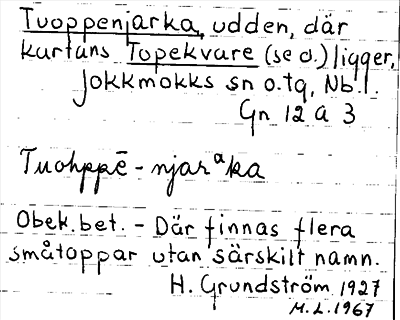 Tuoppenjarka, udden, där
kartans Topekvare (se d.) ligger,
Jokkmokks sn o. tg, Nb. l.
Gn 12 a 3
Tuohppē - njarᵃka
Obek. bet. - Där finnas flera
småtoppar utan särskilt namn.
H. Grundström 1927
M. L. 1967